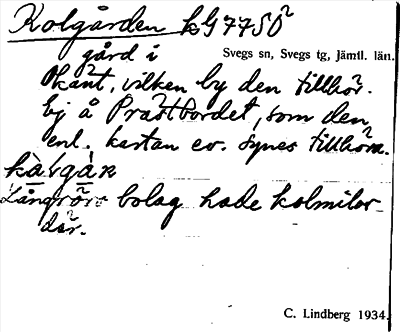 Kolgården kG 77SÖ
gård i Svegs sn, Svegs tg, Jämtl. län.
Okänt, vilken by den tillhör.
Ej å Prästbordet, som den
enl. kartan ev. synes tillhöra.
Långrörs bolag hade kolmilor
där.
C. Lindberg 1934.